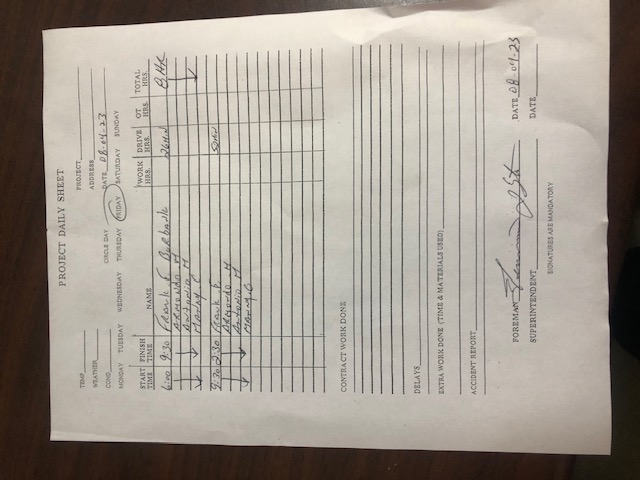 PROJECT DAILY SHEET
TEMP
PROJECT
WEATHER
ADDRESS
COND. CIRCLE DAY DATE 08-04-23
MONDAY TUESDAY WEDNESDAY THURSDAY FRIDAY SATURDAY SUNDAY
START TIME FINISH TIME NAME WORK HRS. DRIVE HRS. OT HRS. TOTAL HRS.
6:00 9:30 FRANK F BURBANK 26 MiN 8 HR
ARMONDO .M
ANTONIO M
MANNY .C
9:30 2:30 FRANK .F. 52 MiN
ARMONDO .M
ANTONIO M
MANNY.C
CONTRACT WORK DONE
DELAYS
EXTRA WORK DONE (TIME & MATERIALS USED)
ACCIDENT REPORT
FOREMAN DATE 08-04-23
SUPERINTENDENT DATE
SIGNATURES ARE MANDATORY